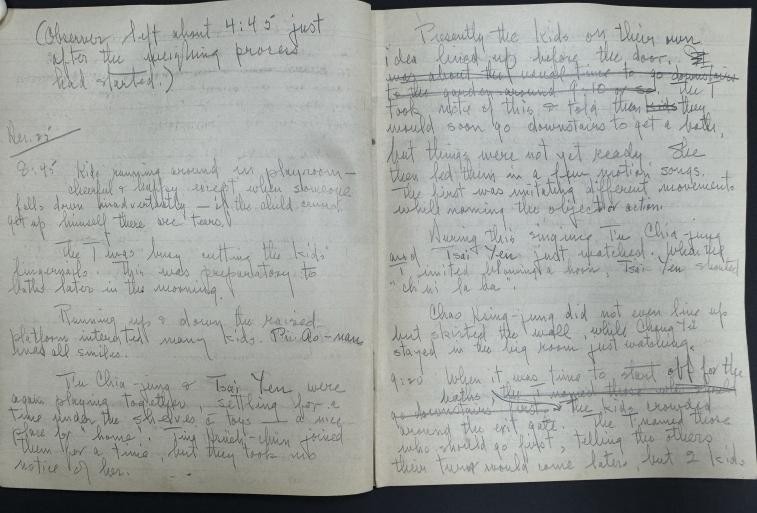 (Observer left about 4:45 just
after the weighing process
had started.)
Dec. 25
8:45 Kids running around in playroom –
cheerful & happy except when someone
falls down inadvertently – if the child cannot
get up himself there are tears.
The T was busy cutting the kids'
fingernails. This was preparatory to
baths later in the morning.
Running up & down the raised
platform interested many kids. Pu Ao-nan
was all smiles.
Tu Chia-jung & Tsai Yen were
again playing together, settling for a
time under the shelves of toys — a nice
place for "home". Ting Hsueh-chin joined
them for a time, but they took no
notice of her.
Presently the kids on their own
idea lined up before the door. It
was about the usual time to go downstairs
to the garden around 9:10 or so. The T
took note of this & told them kids they
would soon go downstairs to get a bath,
but things were not yet ready. She
then led them in a few motion songs.
The first was imitating different movements
while naming the object or action.
During this singing Tu Chia-jung
and Tsai Yen just watched. When the
T imited blowing a horn, Tsai Yen shouted
"chi la ba".
Chao Hsing-jung did not even line up
but skirted the wall, while Chang Yi
stayed in the big room just watching.
9:20 When it was time to start off for the
baths, the T named those who should
go downstairs first. → the kids crowded
around the exit gate. The T named those
who should go first, telling the others
their turns would come later, but 2 kids